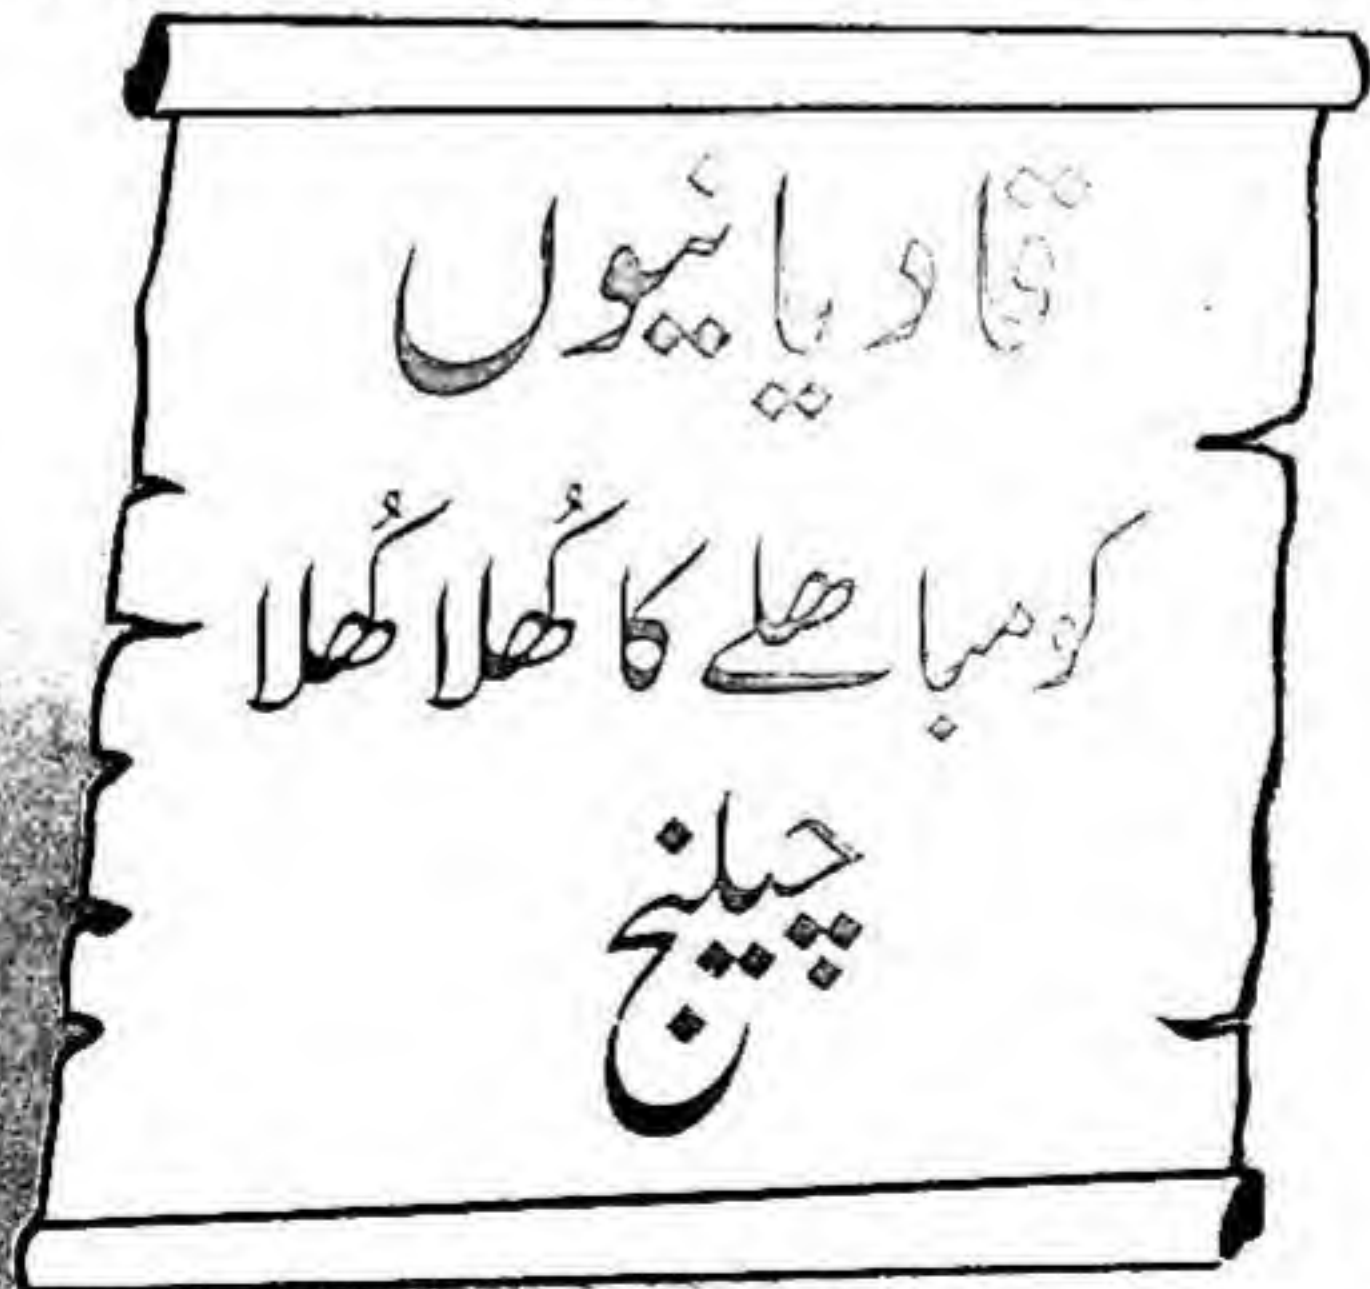 قادیانیوں
کو مباھلے کا کُھلا کُھلا
چیلنج